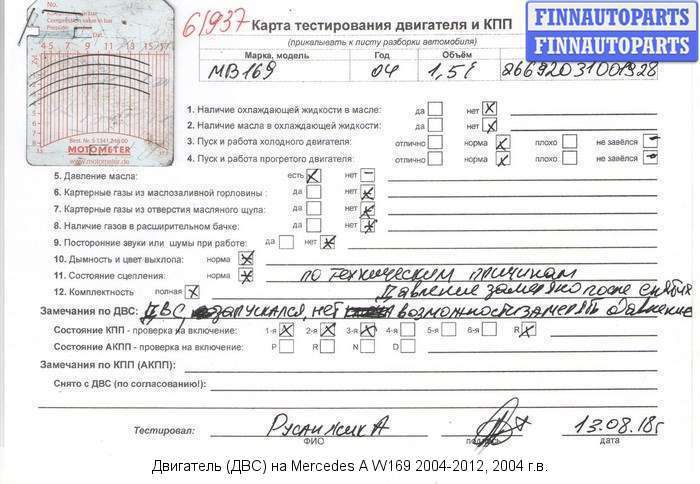 FINNAUTOPARTS
FINNAUTOPARTS
61937
Карта тестирования двигателя и КПП
(прикалывать к листу разборки автомобиля)
Марка, модель Год Объём
МВ 169 04 1,5
4-5 7 9 11 13 15 17
Best. Nr. 5 1341 246 00
MOTOMETER
www.motometer.de
1. Наличие охлаждающей жидкости в масле: да нет
2. Наличие масла в охлаждающей жидкости: да нет
3. Пуск и работа холодного двигателя: отлично норма плохо не завёлся
4. Пуск и работа прогретого двигателя: отлично норма плохо не завёлся
5. Давление масла: есть нет
6. Картерные газы из маслозаливной горловины: да нет
7. Картерные газы из отверстия масляного щупа: да нет
8. Наличие газов в расширительном бачке: да нет
9. Посторонние звуки или шумы при работе: да нет
10. Дымность и цвет выхлопа: норма
11. Состояние сцепления: норма по техническим причинам
12. Комплектность полная Давление замеряно после снятия
Замечания по ДВС: ДВС запускался, нет возможности замерять давление
Состояние КПП - проверка на включение: 1-я 2-я 3-я 4-я 5-я 6-я R
Состояние АКПП - проверка на включение: P R N D
Замечания по КПП (АКПП):
Снято с ДВС (по согласованию!):
Тестировал: А 13.08.18г
ФИО подпись дата
Двигатель (ДВС) на Mercedes A W169 2004-2012, 2004 г.в.